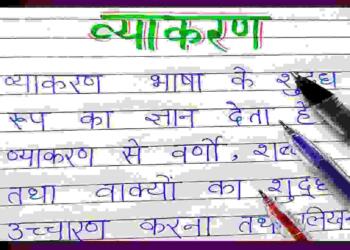 व्याकरण
व्याकरण भाषा के शुद्ध
रूप का ज्ञान देता है
व्याकरण से वर्णो,
तथा वाक्यों का शुद्ध
उच्चारण करना तथा